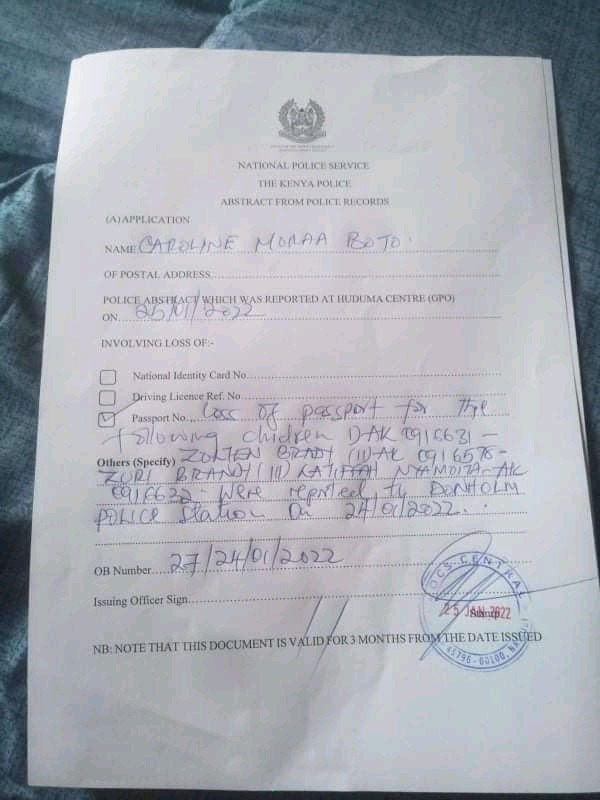 NATIONAL POLICE SERVICE
THE KENYA POLICE
ABSTRACT FROM POLICE RECORDS
(A) APPLICATION
NAME CAROLINE MORAA BOTO
OF POSTAL ADDRESS
POLICE ABSTRACT WHICH WAS REPORTED AT HUDUMA CENTRE (GPO)
ON 25/01/2022
INVOLVING LOSS OF:-
National Identity Card No
Driving Licence Ref. No
Passport No. Loss of passport for the
following children AK 0916631 -
Others (Specify) BRADY (II) AK 0916578 -
ZURI BRANDY (III) LATIFFAH NYAMOITA - AK
0916622 - were reported to DONHOLM
POLICE Station On 24/01/2022
OB Number 27/24/01/2022
Issuing Officer Sign
DCS CENTRAL
25 JAN 2022
Stamp
45796 - 00100, NAIROBI
NB: NOTE THAT THIS DOCUMENT IS VALID FOR 3 MONTHS FROM THE DATE ISSUED